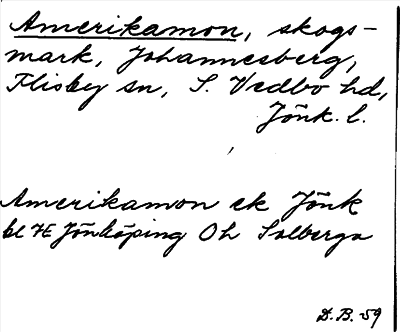 Amerikamon, skogs-
mark, Johannesberg,
Flisby sn, S. Vedbo hd,
Jönk. l.
Amerikamon ek Jönk
bl 7E Jönköping Oh Solberga
D.B. 59